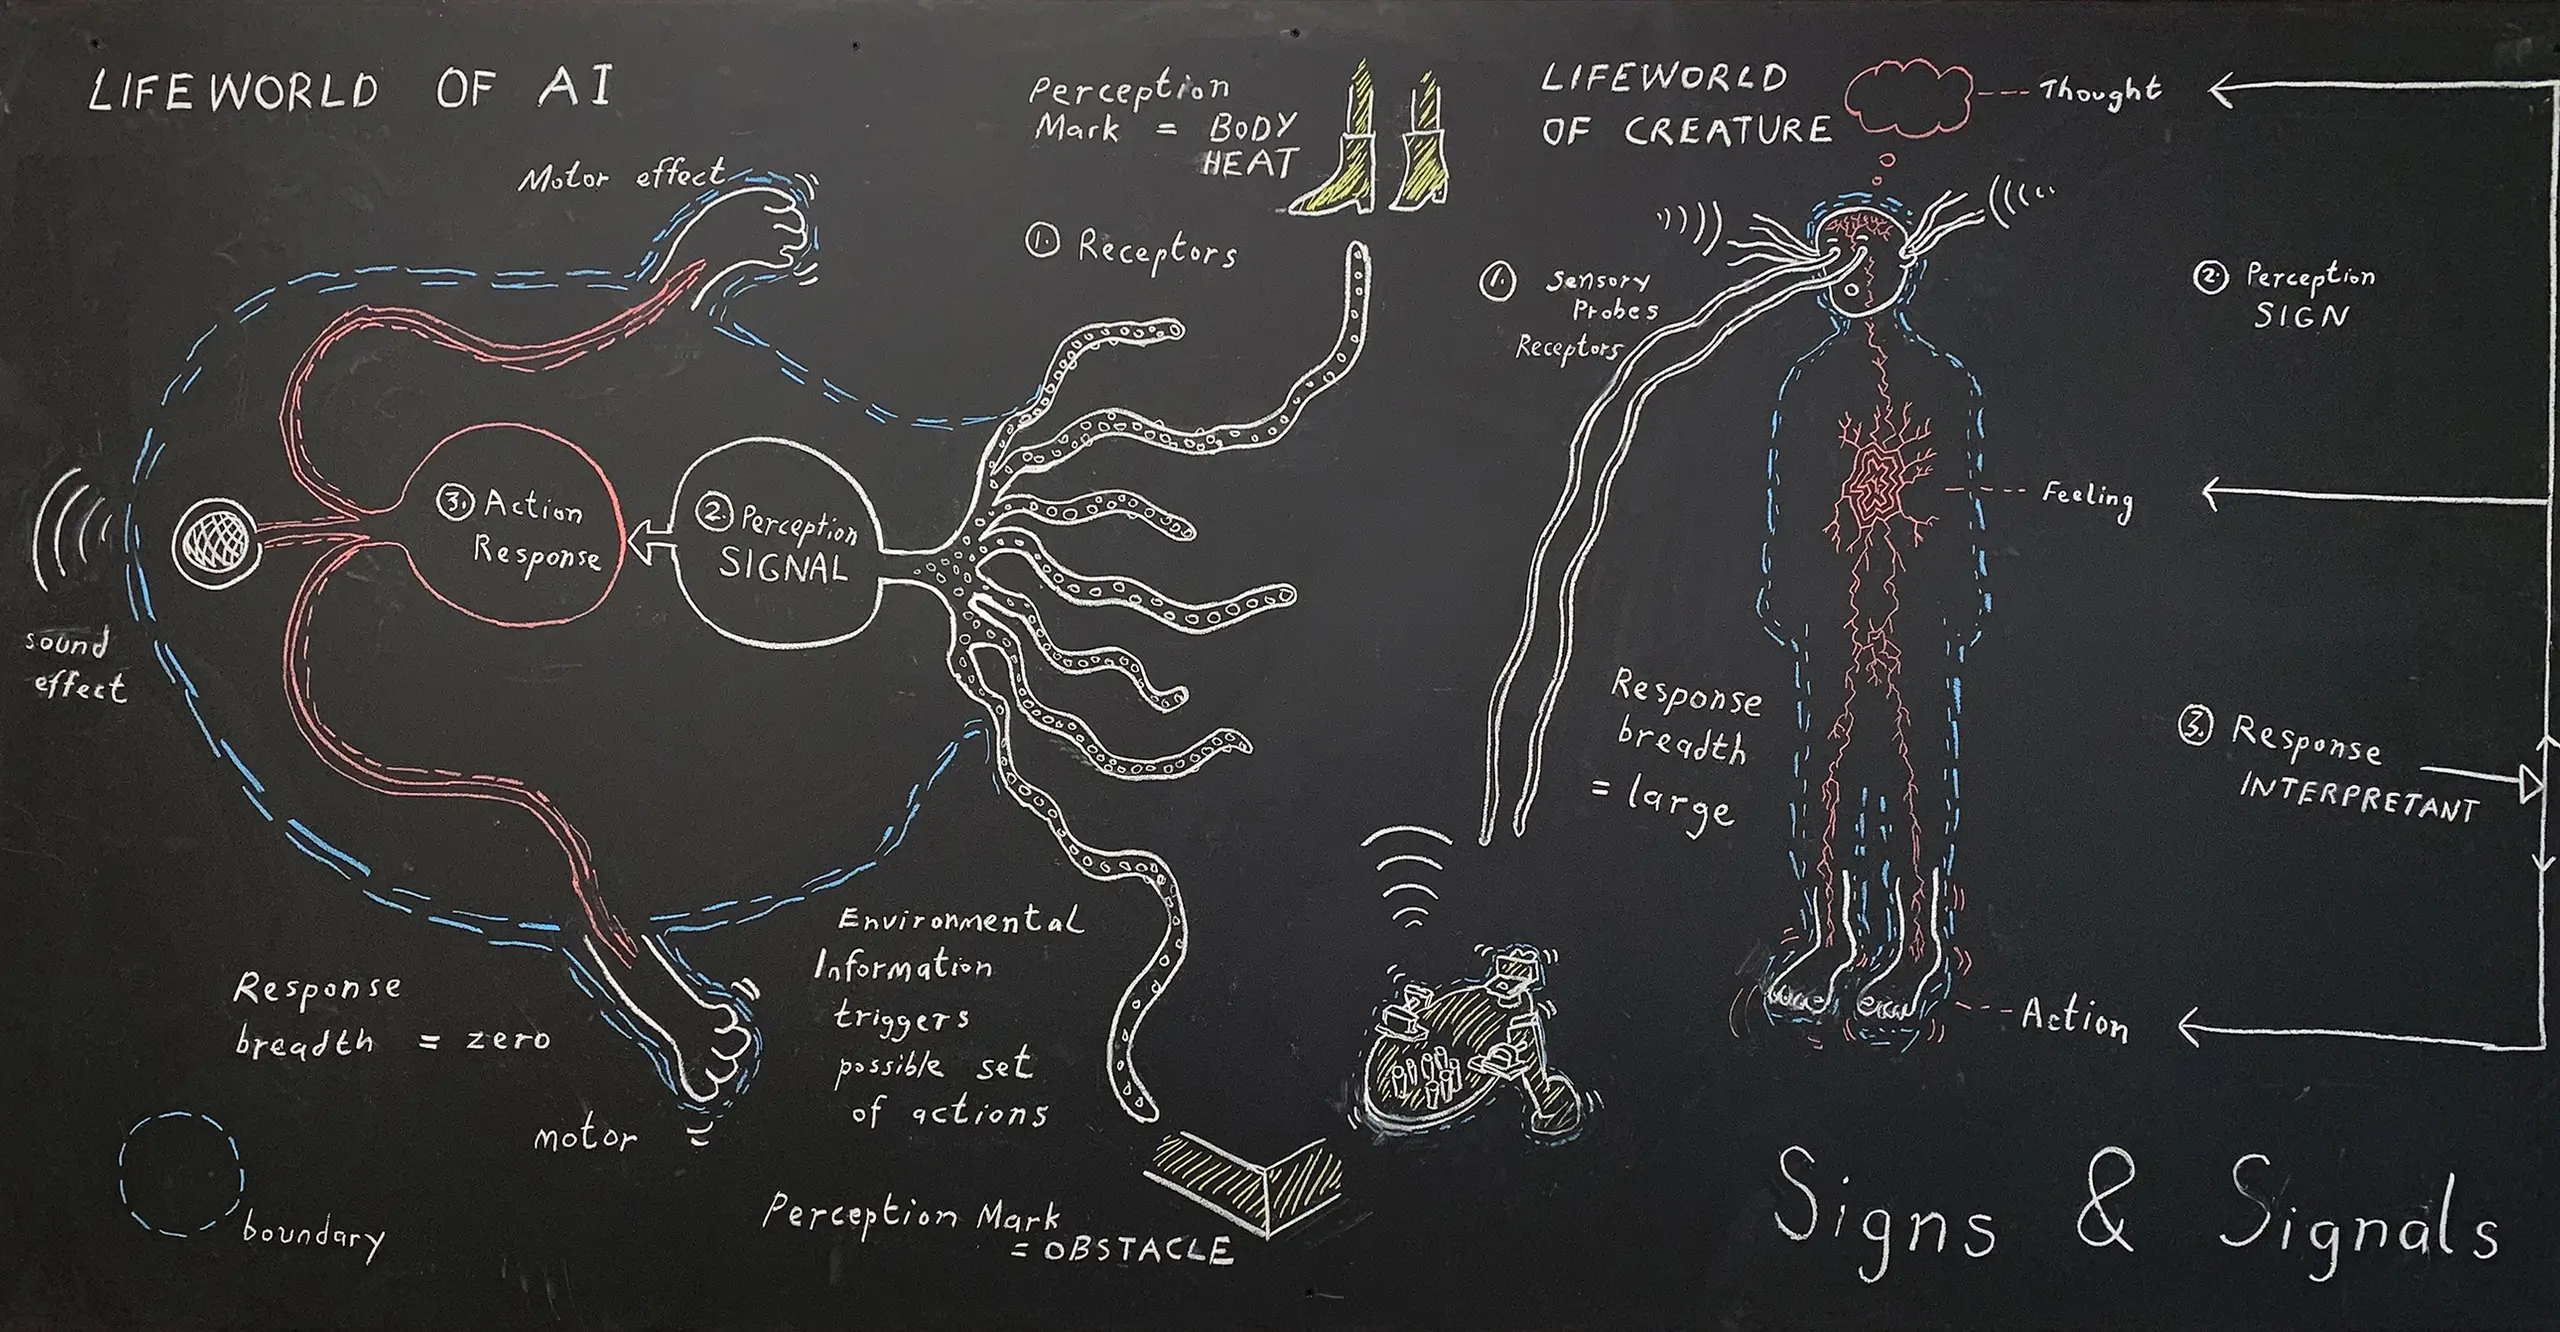 LIFEWORLD OF AI
Motor effect
Perception
Mark = BODY
HEAT
1. Receptors
3. Action
Response
2. Perception
SIGNAL
sound
effect
Response
breadth = zero
motor
boundary
Environmental
Information
triggers
possible set
of actions
Perception Mark
= OBSTACLE
LIFEWORLD
OF CREATURE
Thought
1. Sensory
Probes
Receptors
2. Perception
SIGN
Feeling
Response
breadth
= large
3. Response
INTERPRETANT
Action
Signs & Signals